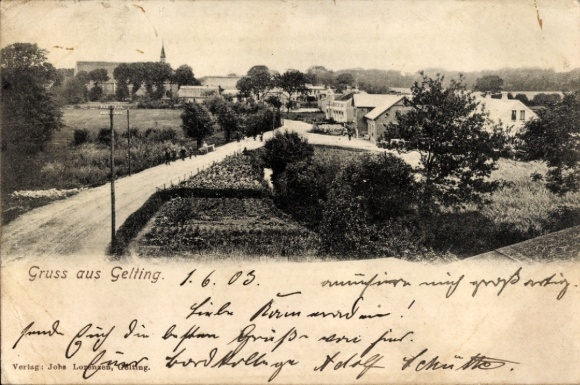 Gruss aus Gelting. 1.6.03. amüsiere mich großartig.
Liebe Kameraden!
sende Euch die besten Grüße von hier.
Euer Adolf Schütte
Verlag: Johs Lorenzen, Gelting.